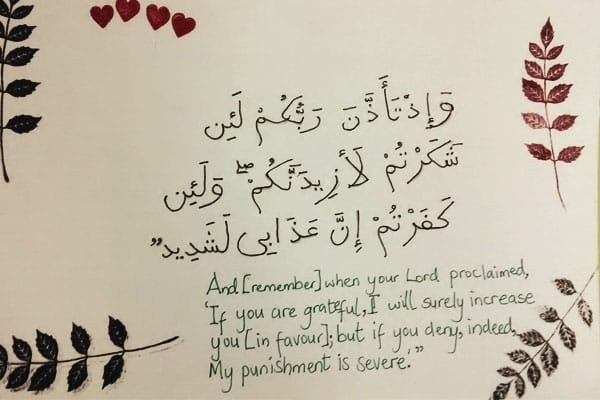 وَإِذْ تَأَذَّنَ رَبُّكُمْ لَئِن
شَكَرْتُمْ لَأَزِيدَنَّكُمْ ۖ وَلَئِن
كَفَرْتُمْ إِنَّ عَذَابِي لَشَدِيد"
And [remember] when your Lord proclaimed,
'If you are grateful, I will surely increase
you [in favour]; but if you deny, indeed,
My punishment is severe.'"